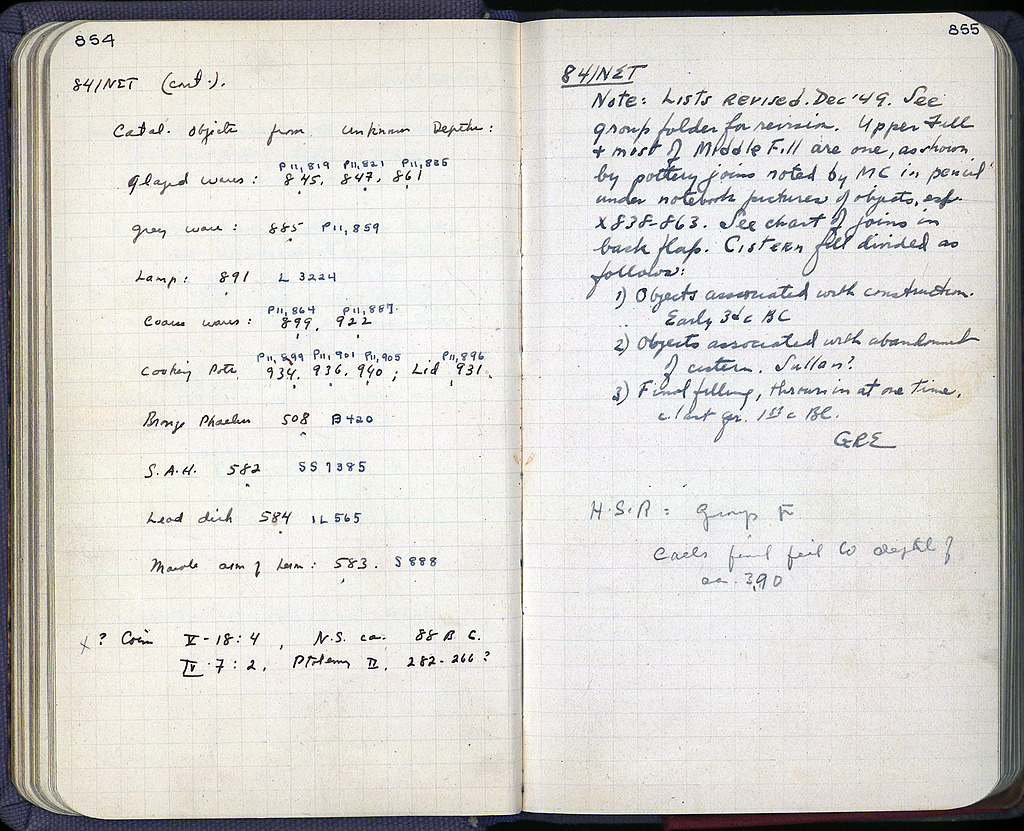 854
84/NET (cont.).
Catal. objects from unknown Depths:
P11,819 P11,821 P11,835
Glazed wares: 845, 847, 861
Grey ware: 885 P11,859
Lamp: 891 L 3224
P11,864 P11,887
Coarse wares: 899, 922
P11,899 P11,901 P11,905 P11,896
Cooking Pots 934, 936, 940; Lid 931.
Bronze 508 B420
S.A.H. 582 SS 7385
Lead disk 584 IL 565
Marble arm of herm: 583. S 888
x ? Coin V-18:4, N.S. ca. 88 B.C.
IV-7:2, Ptolemy II, 282-266?
855
84/NET
Note: Lists revised. Dec '49. See
group folder for revision. Upper Fill
+ most of Middle Fill are one, as shown
by pottery joins noted by MC in pencil
under notebook pictures of objects, esp.
X838-863. See chart of joins in
back flap. Cistern fill divided as
follows:
1) Objects associated with construction.
Early 3d c BC
2) Objects associated with abandonment
of cistern. Sullan?
3) Final filling, thrown in at one time,
c. last qr. 1st c BC.
GRE
H.S.R: Group F
Calls final fill to depth of
ca. 3.90